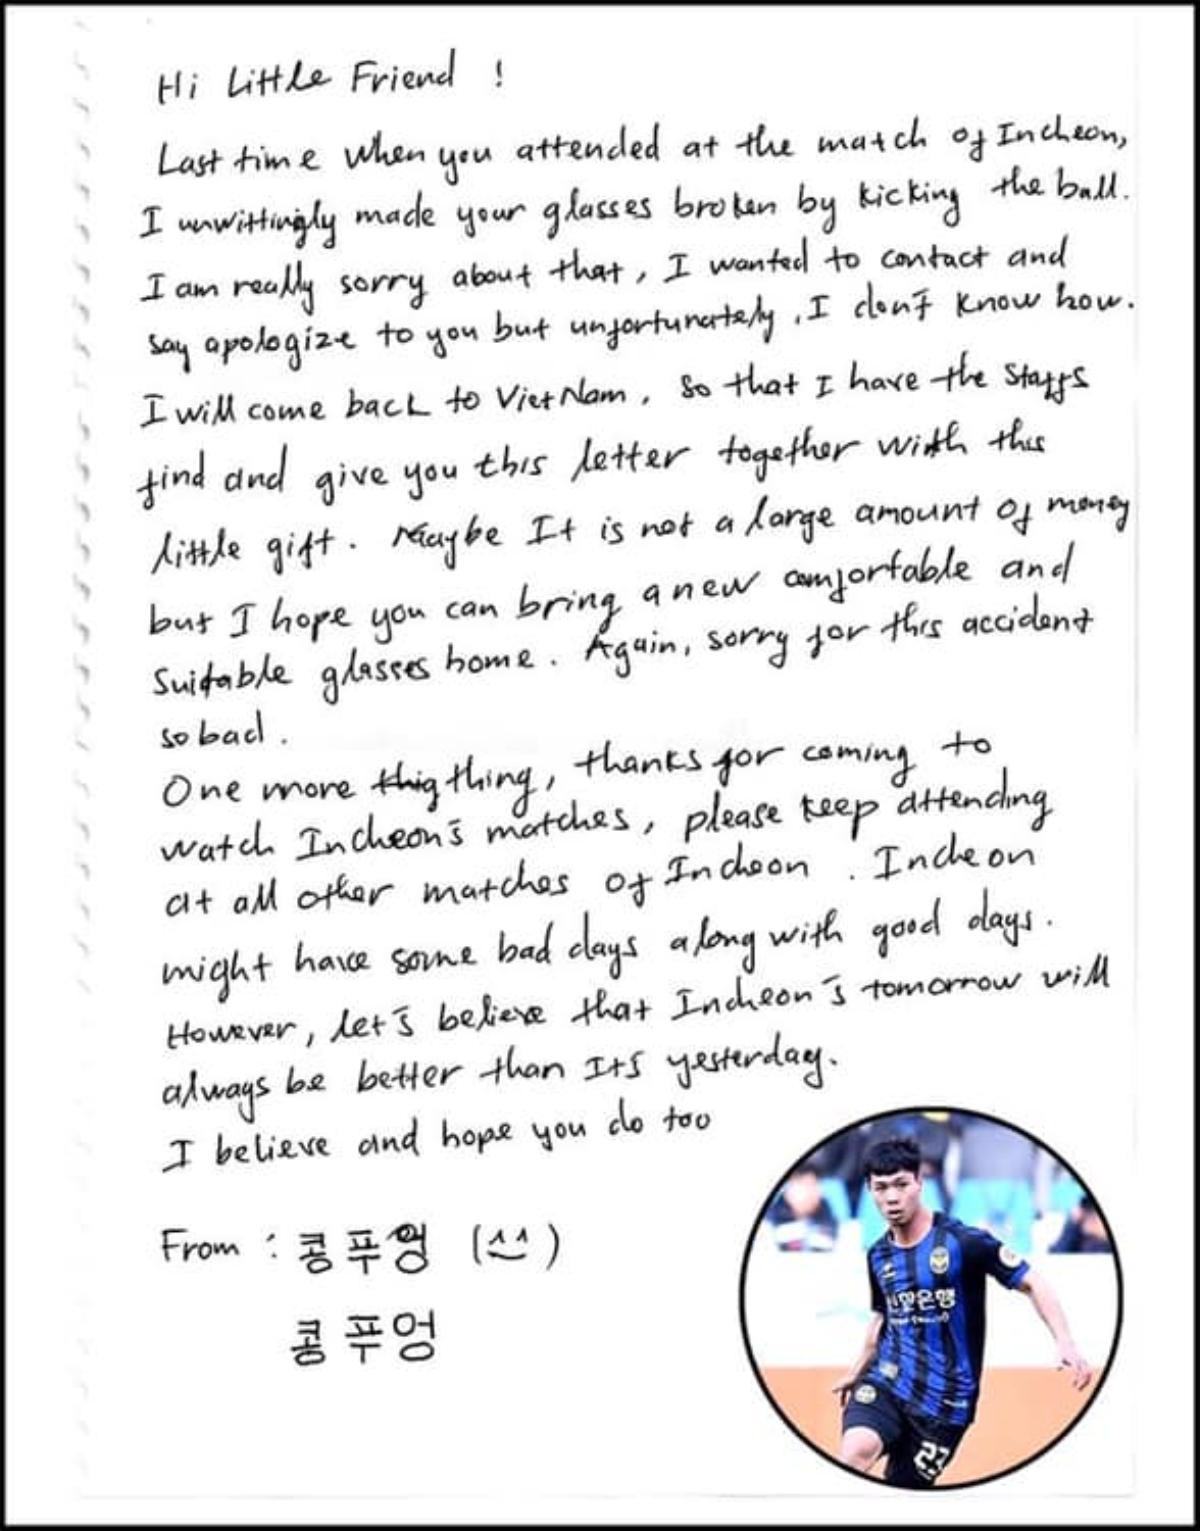 Hi Little Friend !
Last time when you attended at the match of Incheon,
I unwittingly made your glasses broken by kicking the ball.
I am really sorry about that, I wanted to contact and
say apologize to you but unfortunately, I don't know how.
I will come back to VietNam, so that I have the staffs
find and give you this letter together with this
little gift. Maybe It is not a large amount of money
but I hope you can bring a new comfortable and
suitable glasses home. Again, sorry for this accident
so bad.
One more thig thing, thanks for coming to
watch Incheon's matches, please keep attending
at all other matches of Incheon. Incheon
might have some bad days along with good days.
However, let's believe that Incheon's tomorrow will
always be better than Its yesterday.
I believe and hope you do too
From : 콩푸엉 (^^)
콩푸엉
신한은행
23